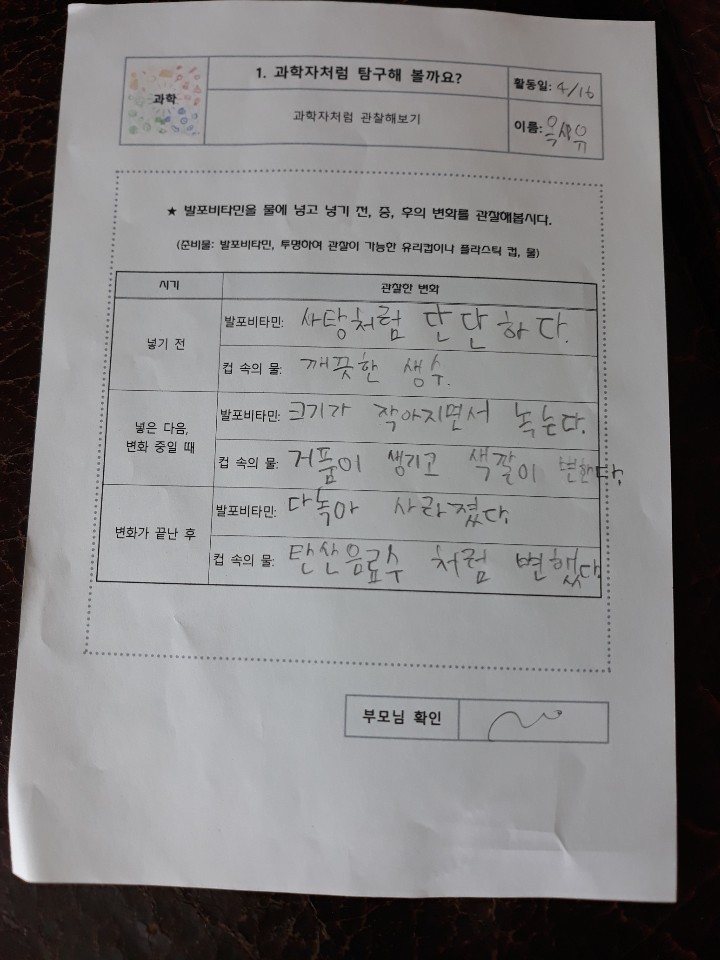 과학
1. 과학자처럼 탐구해 볼까요?
활동일: 4/16
과학자처럼 관찰해보기
이름: 옥서유
★ 발포비타민을 물에 넣고 넣기 전, 중, 후의 변화를 관찰해봅시다.
(준비물: 발포비타민, 투명하여 관찰이 가능한 유리컵이나 플라스틱 컵, 물)
시기 관찰한 변화
넣기 전
발포비타민: 사탕처럼 단단하다.
컵 속의 물: 깨끗한 생수.
넣은 다음,
변화 중일 때
발포비타민: 크기가 작아지면서 녹는다.
컵 속의 물: 거품이 생기고 색깔이 변한다.
변화가 끝난 후
발포비타민: 다녹아 사라졌다.
컵 속의 물: 탄산음료수 처럼 변했다
부모님 확인